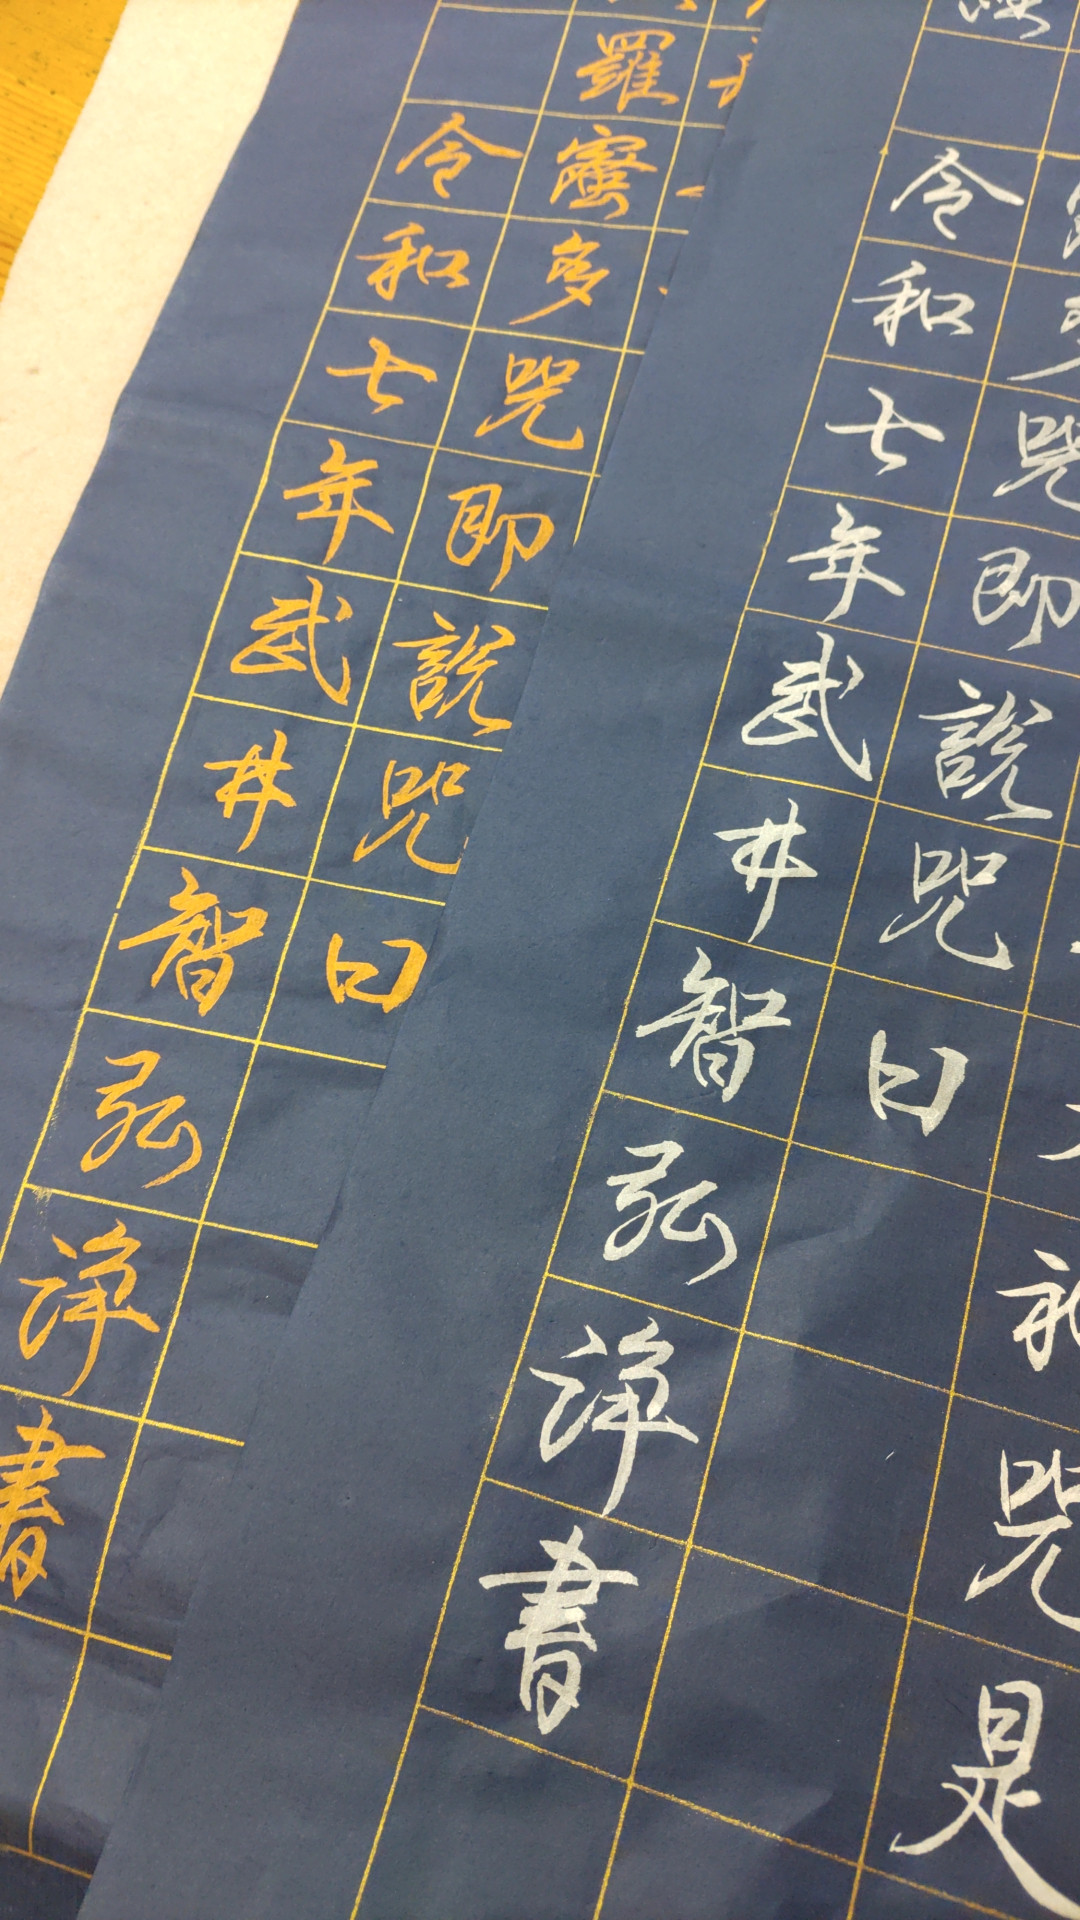 咒是
多咒即說咒曰
令和七年武井智弘浄書
羅蜜多咒即說咒曰
令和七年武井智弘浄書